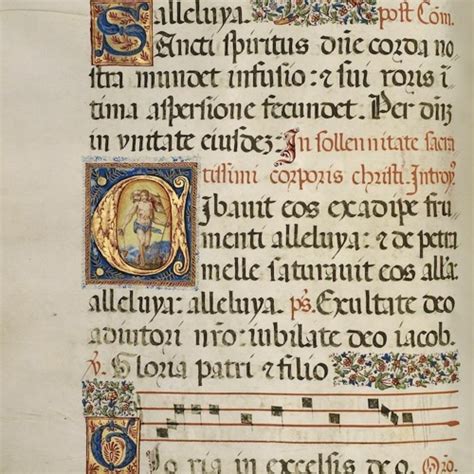 alleluya. post Cōm.
Sancti spiritus dn̄e corda no
stra mundet infusio: ⁊ sui roris ī
tima aspersione fecundet. Per dn̄z
in vnitate eiusdez: In sollennitate sacra
tissimi corporis christi. Introy͛.
Cibauit eos exadipe fru
menti alleluya: ⁊ de petra
melle saturauit eos alla
alleluya: alleluya. ps. Exultate deo
adiutori nr̄o: iubilate deo iacob.
v. Gloria patri ⁊ filio
Gloria in excelsis deo. Oro.